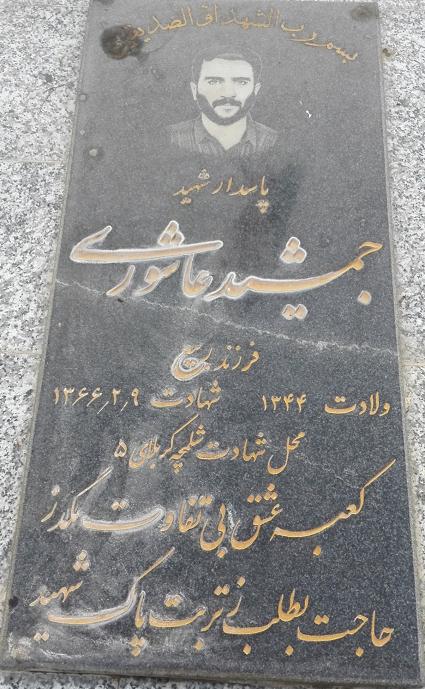 بسم رب الشهداء و الصدیقین
پاسدار شهید
جمشید عاشوری
فرزند ربیع
ولادت ۱۳۴۴ شهادت ۱۳۶۶/۲/۹
محل شهادت شلمچه کربلای ۵
کعبه عشق بی تفاوت مگذر
حاجت بطلب ز تربت پاک شهید